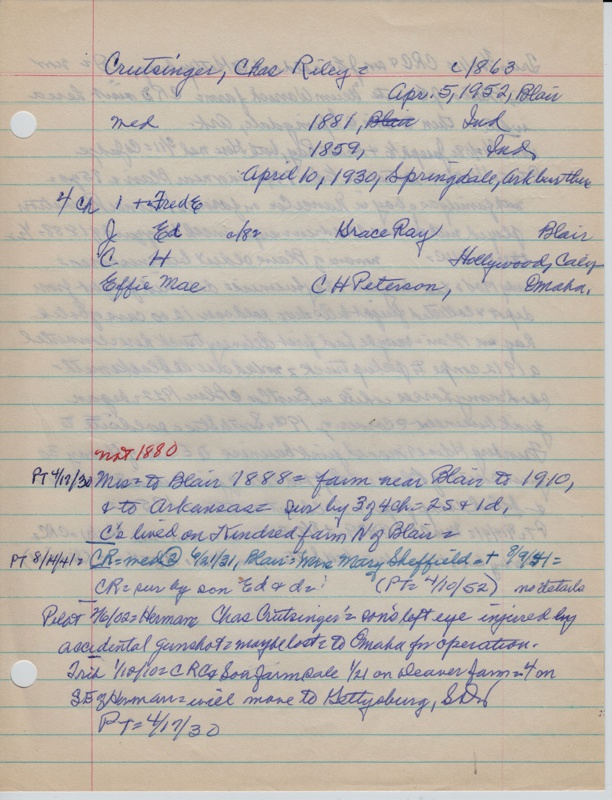 Crutsinger, Chas Riley = c/1863
Apr. 5, 1952, Blair
med 1881, Blair Ind
1859, Ind,
April 10, 1930, Springdale, Ark bur there
4 ch 1 + Fred E
J. Ed c/82 Grace Ray Blair
C. H Hollywood, Caly
Effie Mae C H Peterson, Omaha.
not 1880
PT 4/17/30 Miss = to Blair 1888 = farm near Blair to 1910,
& to Arkansas = sur by 3 of 4 ch = 2 S & 1 d,
C's lived on Kindred farm N of Blair =
PT 8/14/41 = CR = med @ 6/21/31, Blair = Mrs Mary Sheffield = + 8/9/41 =
CR = sur by son Ed & d = (PT = 4/10/52) no details
Pilot 7/6/02 = Herman Chas Crutsinger's = son's left eye injured by
accidental gunshot = maybe lost = to Omaha for operation.
Trib 1/10/10 = C R C & Son farm sale 1/21 on Deaver farm = 4 on
SE of Herman = will move to Gettysburg, S D
PT = 4/17/30